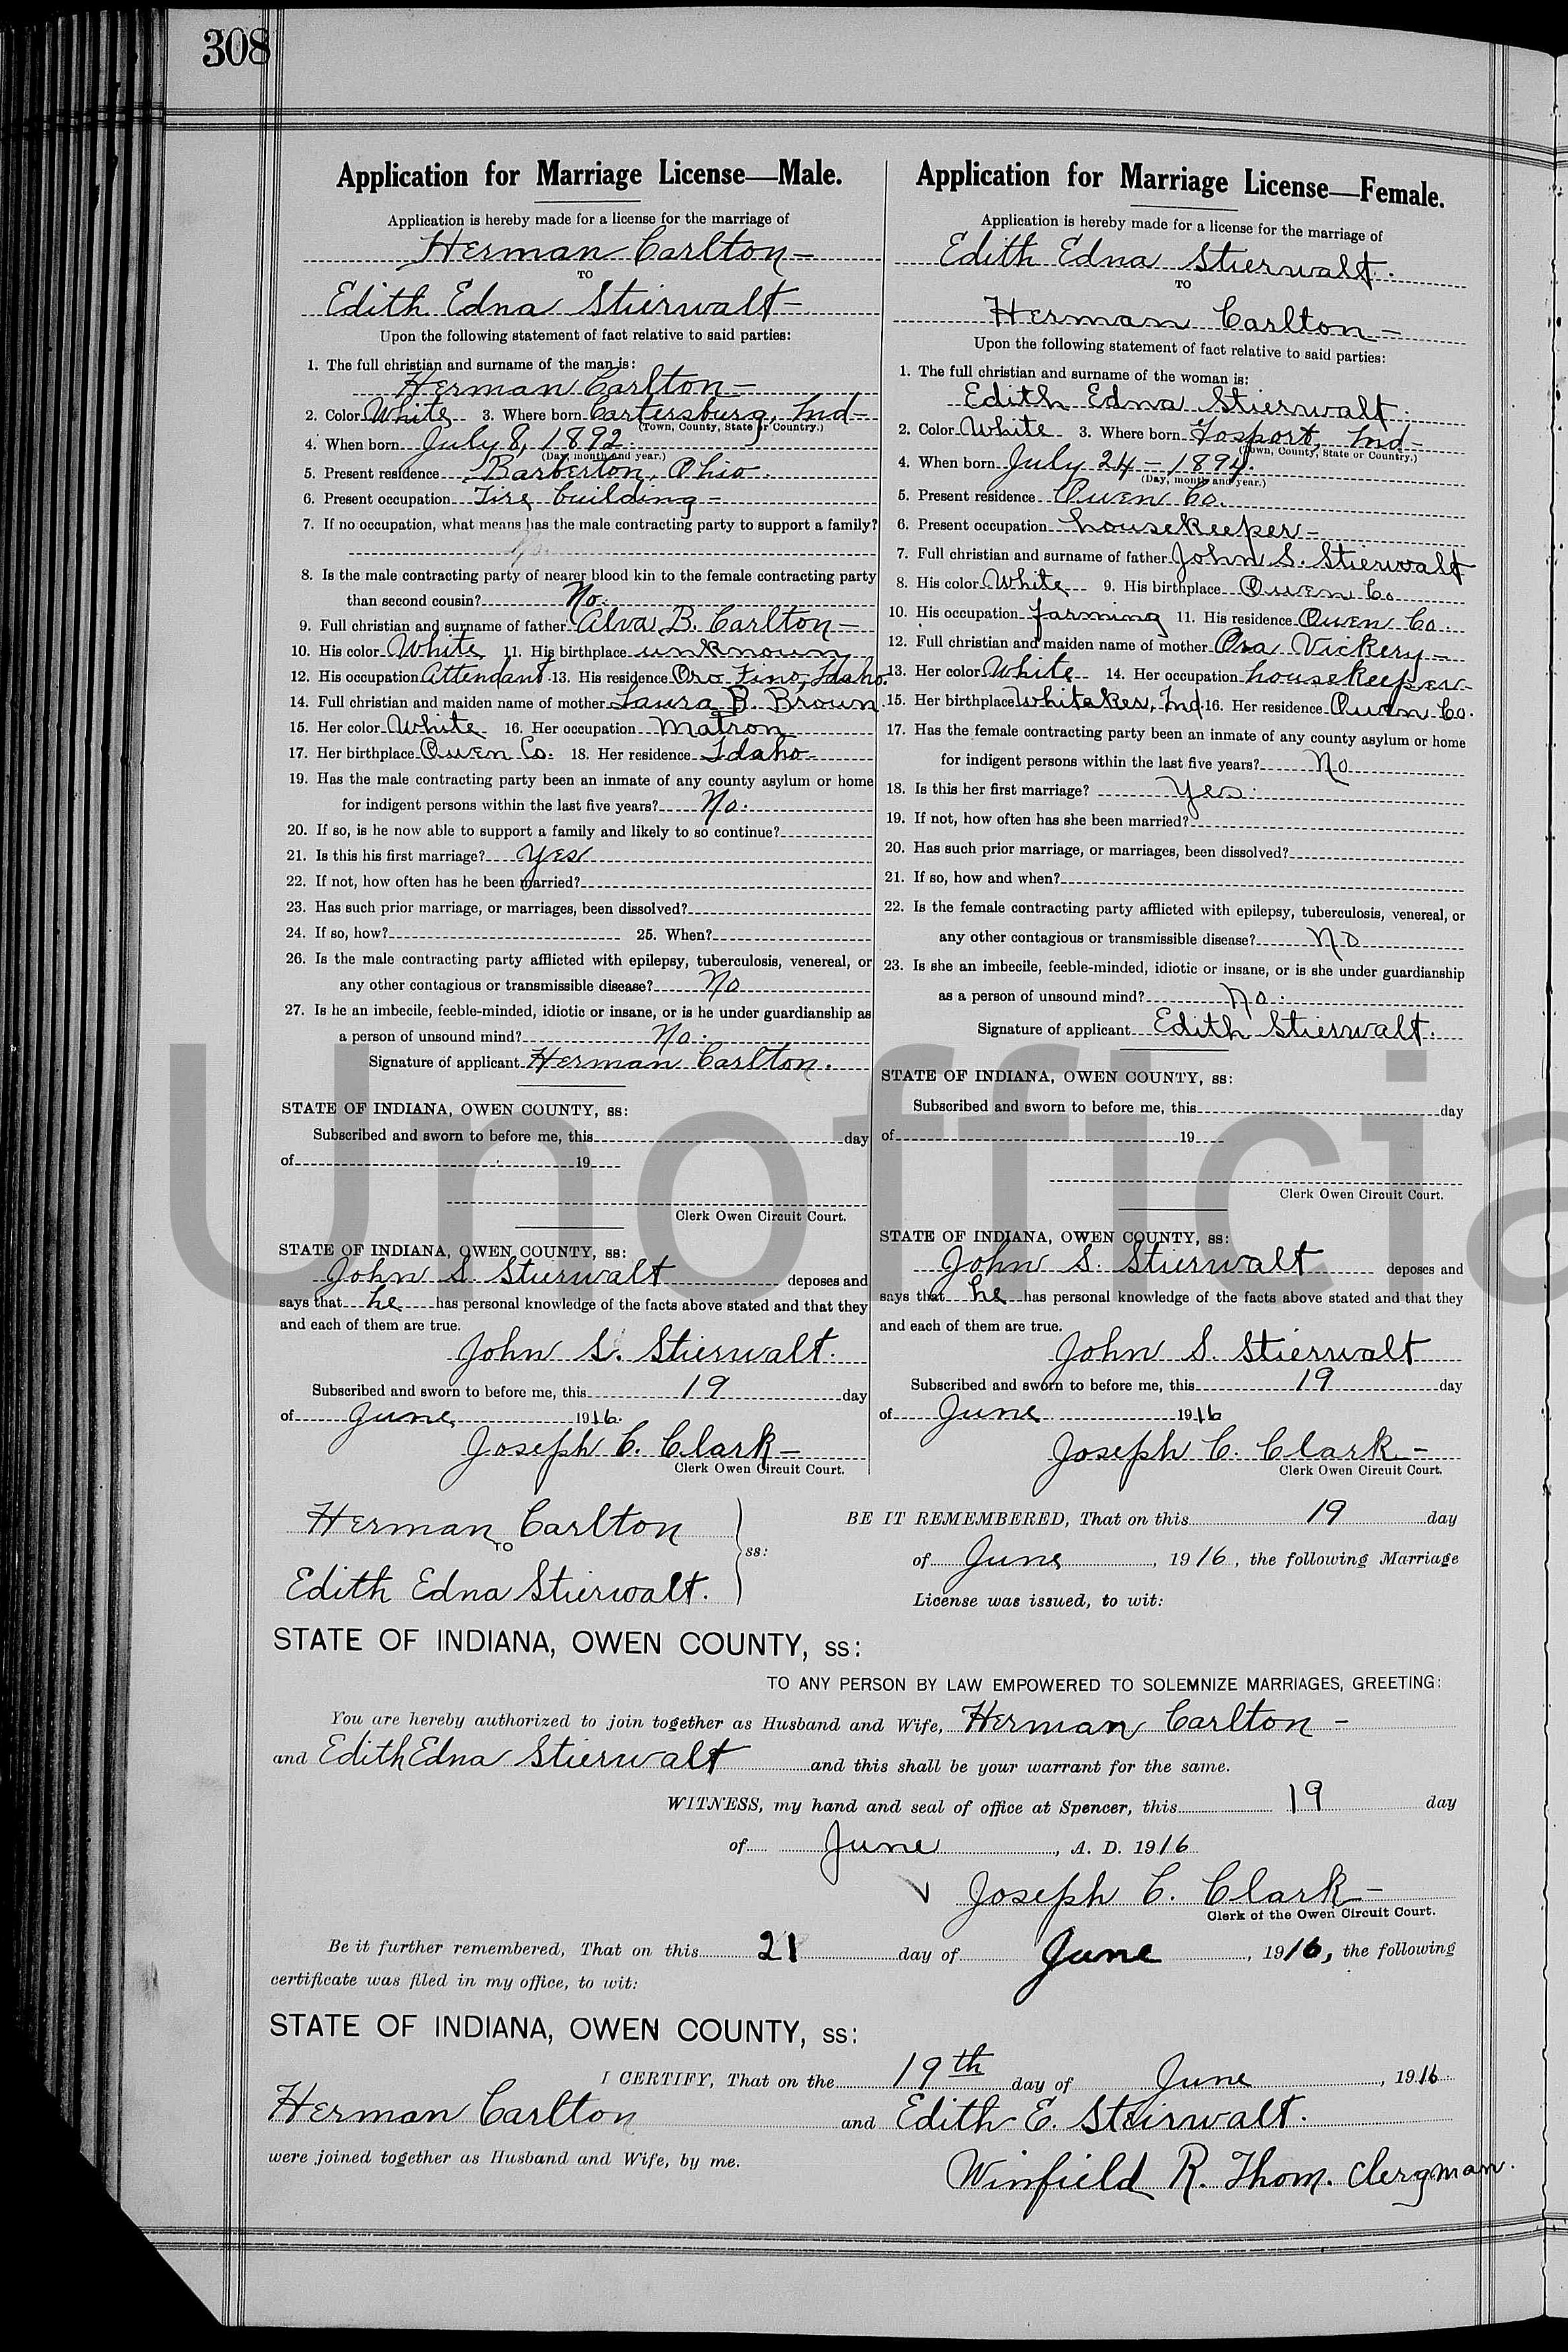 308
Application for Marriage License—Male.
Application is hereby made for a license for the marriage of
Herman Carlton —
TO
Edith Edna Stierwalt —
Upon the following statement of fact relative to said parties:
1. The full christian and surname of the man is:
Herman Carlton —
2. Color White 3. Where born Cartersburg, Ind —
(Town, County, State or Country.)
4. When born July 8, 1892.
(Day, month and year.)
5. Present residence Barberton, Ohio.
6. Present occupation Tire building —
7. If no occupation, what means has the male contracting party to support a family?
8. Is the male contracting party of nearer blood kin to the female contracting party
than second cousin? No.
9. Full christian and surname of father Alva B. Carlton —
10. His color White 11. His birthplace unknown
12. His occupation Attendant 13. His residence Oro Fino, Idaho.
14. Full christian and maiden name of mother Laura Brown
15. Her color White 16. Her occupation Matron
17. Her birthplace Owen Co. 18. Her residence Idaho —
19. Has the male contracting party been an inmate of any county asylum or home
for indigent persons within the last five years? No.
20. If so, is he now able to support a family and likely to so continue?
21. Is this his first marriage? Yes
22. If not, how often has he been married?
23. Has such prior marriage, or marriages, been dissolved?
24. If so, how? 25. When?
26. Is the male contracting party afflicted with epilepsy, tuberculosis, venereal, or
any other contagious or transmissible disease? No
27. Is he an imbecile, feeble-minded, idiotic or insane, or is he under guardianship as
a person of unsound mind? No.
Signature of applicant Herman Carlton.
STATE OF INDIANA, OWEN COUNTY, ss:
Subscribed and sworn to before me, this day
of 19
Clerk Owen Circuit Court.
STATE OF INDIANA, OWEN COUNTY, ss:
John S. Stierwalt deposes and
says that he has personal knowledge of the facts above stated and that they
and each of them are true.
John S. Stierwalt.
Subscribed and sworn to before me, this 19 day
of June 1916.
Joseph C. Clark —
Clerk Owen Circuit Court.
Application for Marriage License—Female.
Application is hereby made for a license for the marriage of
Edith Edna Stierwalt.
TO
Herman Carlton —
Upon the following statement of fact relative to said parties:
1. The full christian and surname of the woman is:
Edith Edna Stierwalt.
2. Color White 3. Where born Gosport, Ind —
(Town, County, State or Country.)
4. When born July 24 — 1894.
(Day, month and year.)
5. Present residence Owen Co.
6. Present occupation housekeeper —
7. Full christian and surname of father John S. Stierwalt
8. His color White 9. His birthplace Owen Co
10. His occupation farming 11. His residence Owen Co.
12. Full christian and maiden name of mother Ora Vickery —
13. Her color White 14. Her occupation housekeeper —
15. Her birthplace Whitaker, Ind. 16. Her residence Owen Co.
17. Has the female contracting party been an inmate of any county asylum or home
for indigent persons within the last five years? No
18. Is this her first marriage? Yes.
19. If not, how often has she been married?
20. Has such prior marriage, or marriages, been dissolved?
21. If so, how and when?
22. Is the female contracting party afflicted with epilepsy, tuberculosis, venereal, or
any other contagious or transmissible disease? No
23. Is she an imbecile, feeble-minded, idiotic or insane, or is she under guardianship
as a person of unsound mind? No.
Signature of applicant Edith Stierwalt.
STATE OF INDIANA, OWEN COUNTY, ss:
Subscribed and sworn to before me, this day
of 19
Clerk Owen Circuit Court.
STATE OF INDIANA, OWEN COUNTY, ss:
John S. Stierwalt deposes and
says that he has personal knowledge of the facts above stated and that they
and each of them are true.
John S. Stierwalt
Subscribed and sworn to before me, this 19 day
of June 1916
Joseph C. Clark —
Clerk Owen Circuit Court.
Herman Carlton
TO
Edith Edna Stierwalt.
ss:
BE IT REMEMBERED, That on this 19 day
of June, 1916, the following Marriage
License was issued, to wit:
STATE OF INDIANA, OWEN COUNTY, ss:
TO ANY PERSON BY LAW EMPOWERED TO SOLEMNIZE MARRIAGES, GREETING:
You are hereby authorized to join together as Husband and Wife, Herman Carlton —
and Edith Edna Stierwalt and this shall be your warrant for the same.
WITNESS, my hand and seal of office at Spencer, this 19 day
of June, A. D. 1916
Joseph C. Clark —
Clerk of the Owen Circuit Court.
Be it further remembered, That on this 21 day of June, 1916, the following
certificate was filed in my office, to wit:
STATE OF INDIANA, OWEN COUNTY, ss:
I CERTIFY, That on the 19th day of June, 1916.
Herman Carlton and Edith E. Steirwalt.
were joined together as Husband and Wife, by me.
Winfield R. Thom. Clergman.
Unofficia